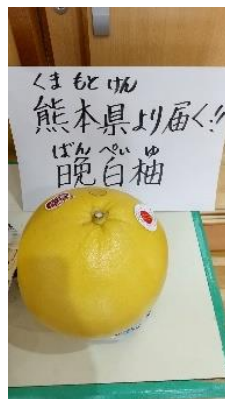 くまもとけん
熊本県より届く!!
ばんぺいゆ
晩白柚